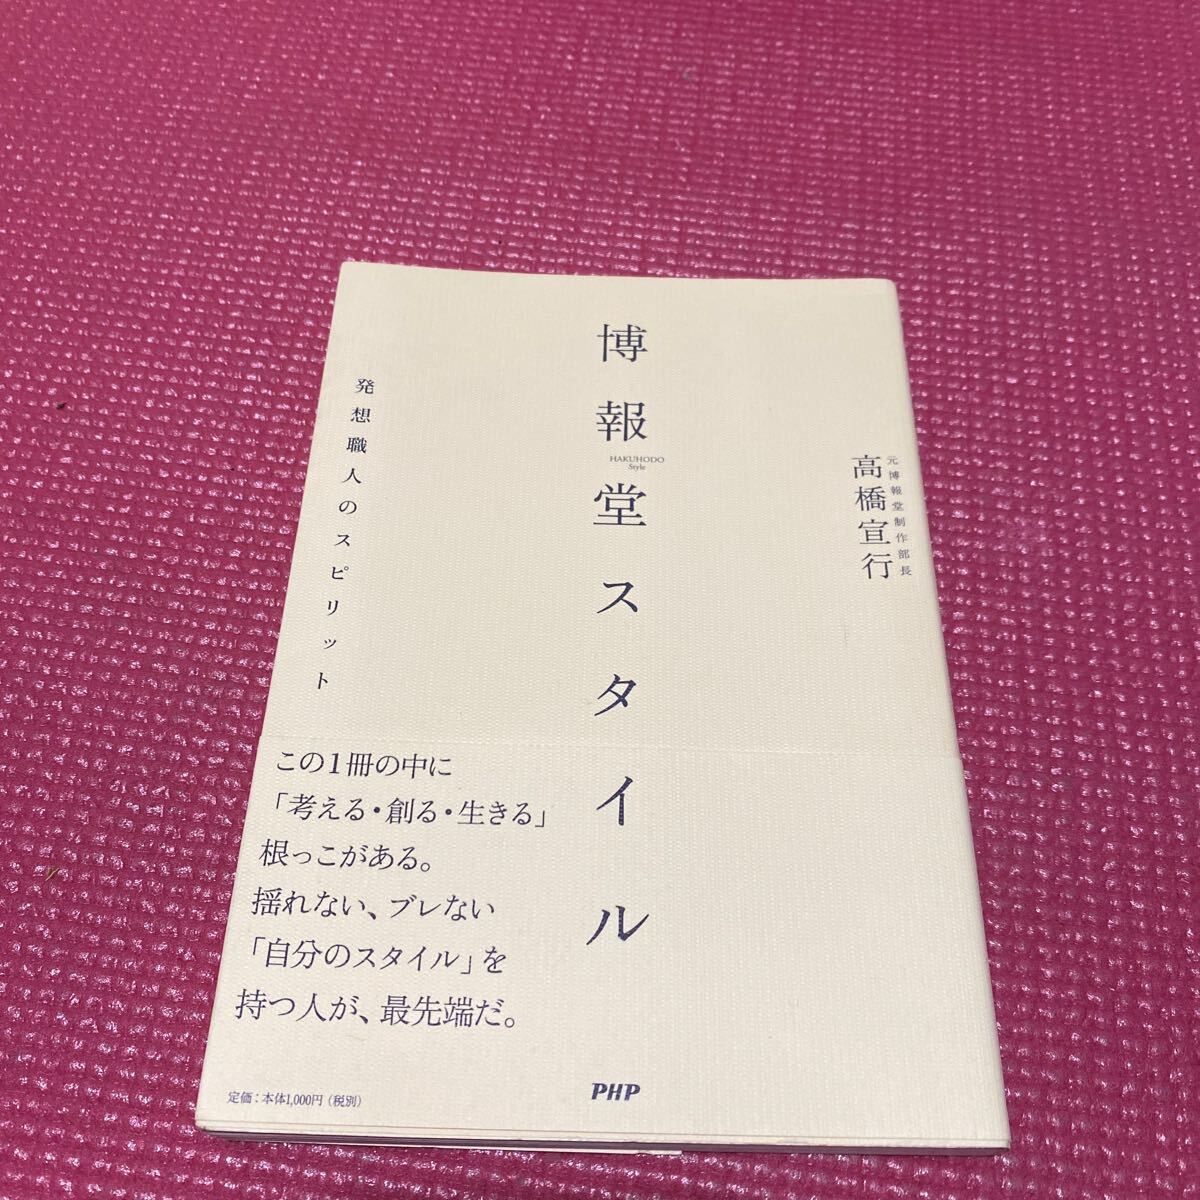 元博報堂制作部長
高橋宣行
博報堂スタイル
HAKUHODO
Style
発想職人のスピリット
この1冊の中に
「考える・創る・生きる」
根っこがある。
揺れない、ブレない
「自分のスタイル」を
持つ人が、最先端だ。
定価：本体1,000円（税別）
PHP